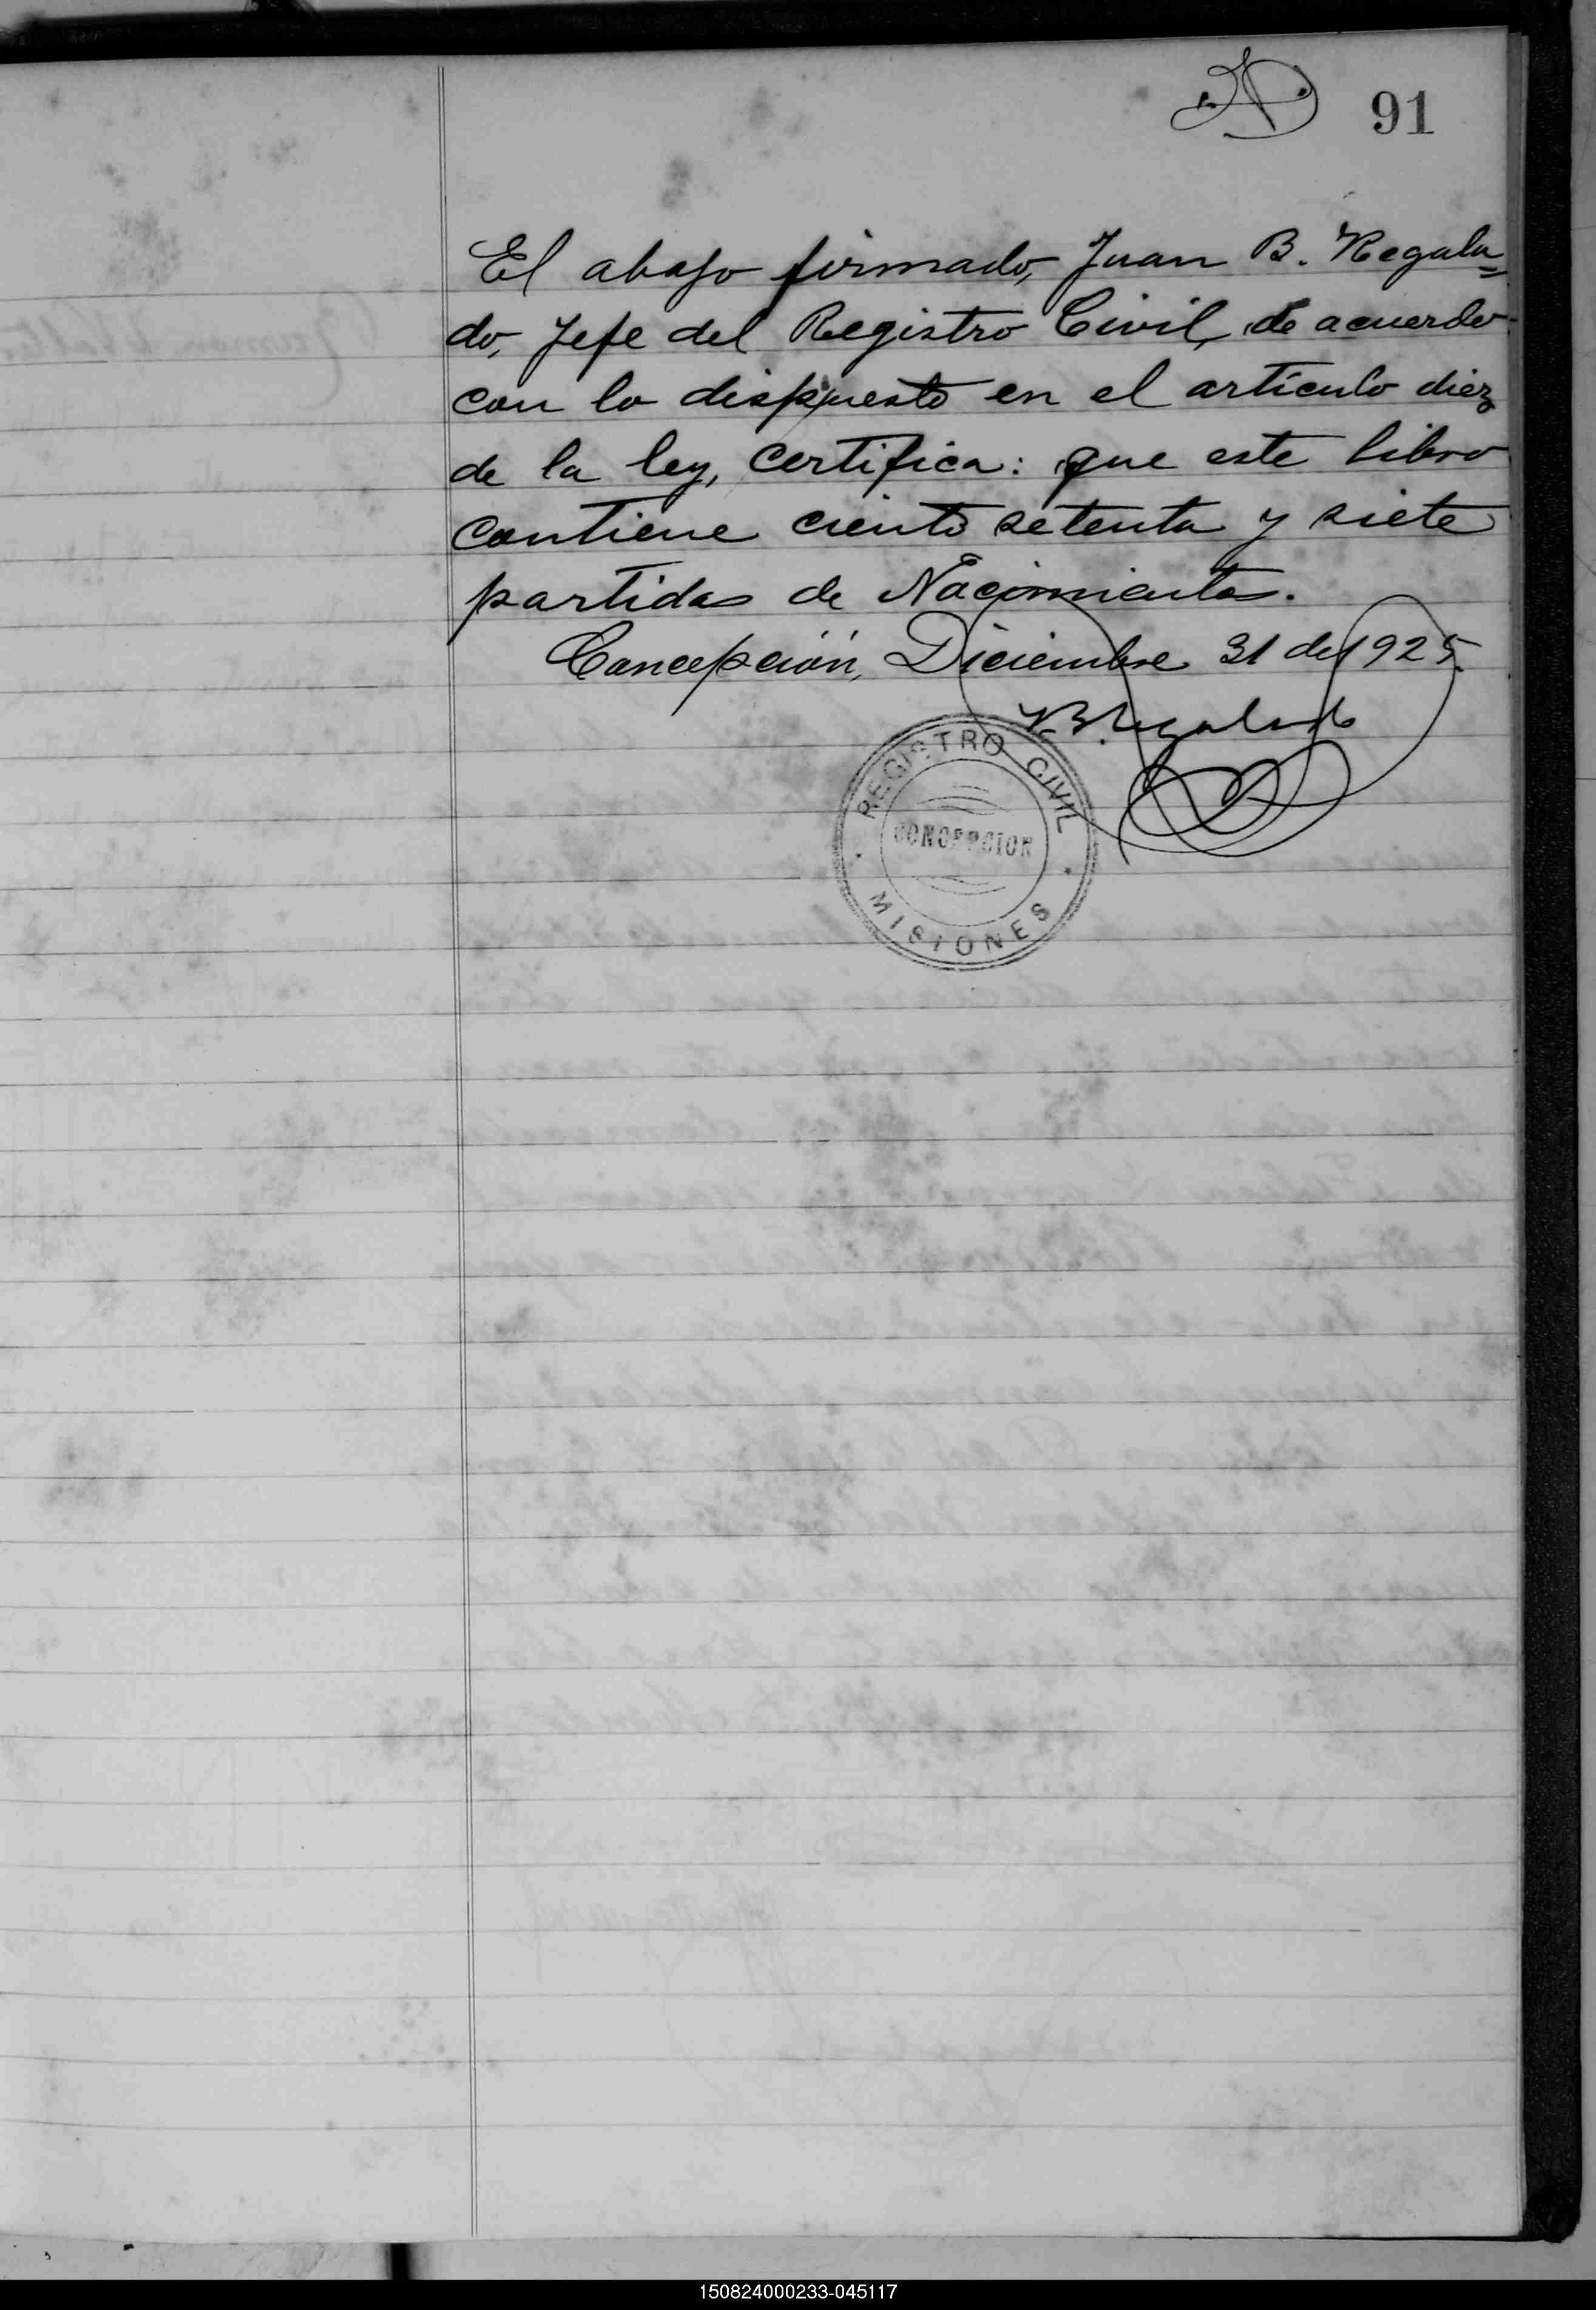 91
El abajo firmado, Juan B. Regala=
do, Jefe del Registro Civil, de acuerdo
con lo dispuesto en el artículo diez
de la ley, certifica: que este libro
contiene ciento setenta y siete
partidas de Nacimientos.
Concepción, Diciembre 31 de 1925.
J. B. Regalado
REGISTRO CIVIL
CONCEPCION
MISIONES
150824000233-045117